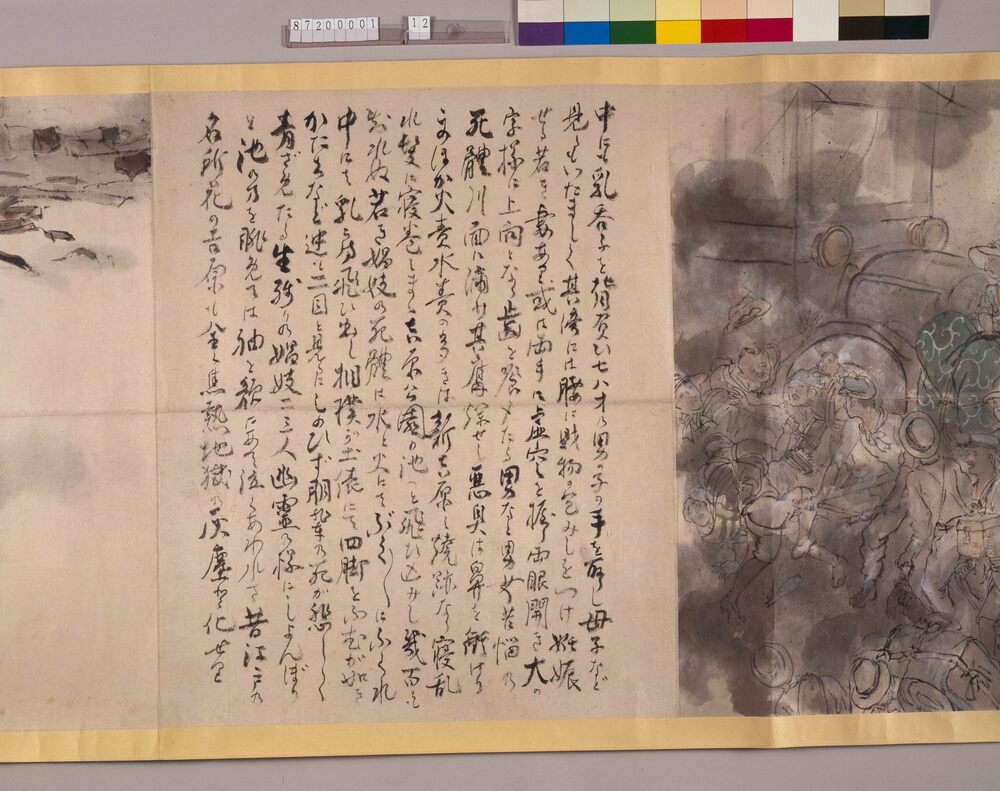 87200001 12
中にも乳呑子を背負ひ七八才の男の子の手を引し母子など
見るもいたましく其際には腰に財物の包みしをつけ妊娠
せる若き妻あり或は両手に虚空を握り両眼開き大の
字様に上向となり歯を喰〆たる男など男女苦悩の
死體川面に満ち其腐爛せし悪臭は鼻を衝ける
そのほか火責水責の
は新吉原の焼跡なり寝乱
れ髪に寝巻のまま吉原公園の池へと飛ひ込みし幾百と
数れぬ若き娼妓の死體は水と火にてぶくぶくにふくれ
中にも乳房飛ひ出し相撲が土俵にて四脚をふむが如き
かたちなど
目と見るにしのびず
の死が悲しく
青ざめたる生残りの娼妓二三人幽霊の様にしよんぼり
と池の方を眺めては袖を顔にあて泣くあわれさ昔江戸の
名所花の吉原も全く焦熱地獄の灰塵と化せり